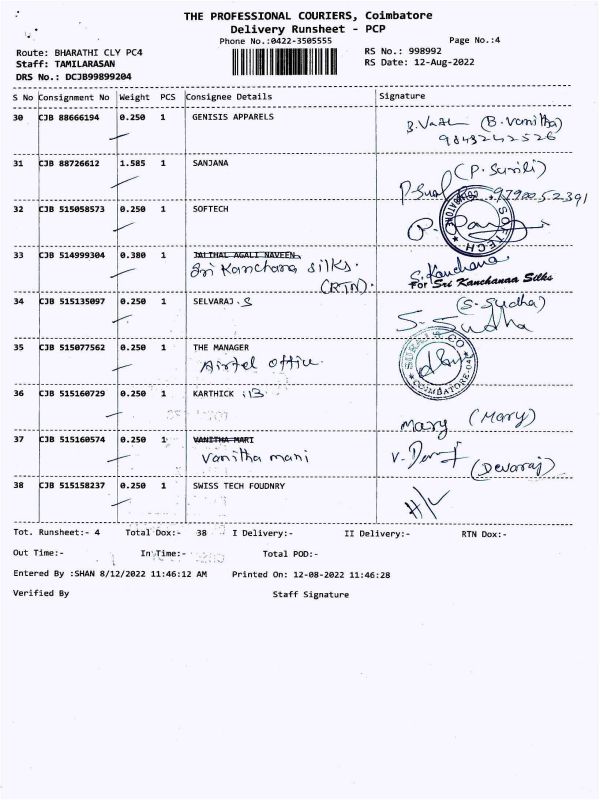 THE PROFESSIONAL COURIERS, Coimbatore
Delivery Runsheet - PCP
Phone No.:0422-3505555 Page No.:4
Route: BHARATHI CLY PC4 RS No.: 998992
Staff: TAMILARASAN RS Date: 12-Aug-2022
DRS No.: DCJB99899204
S No Consignment No Weight PCS Consignee Details Signature
30 CJB 88666194 0.250 1 GENISIS APPARELS
(B. Vanitha)
9843242526
31 CJB 88726612 1.585 1 SANJANA
32 CJB 515058573 0.250 1 SOFTECH
SOFTECH
33 CJB 514999304 0.380 1 JAITHAL AGALI NAVEEN
Sri Kanchana silks. S. Kanchana
(RTN). For Sri Kanchanaa Silks
34 CJB 515135097 0.250 1 SELVARAJ . S (S. Sudha)
S. Sudha
35 CJB 515077562 0.250 1 THE MANAGER
Airtel office.
SURAJ & CO
COIMBATORE
36 CJB 515160729 0.250 1 KARTHICK
Mary (Mary)
37 CJB 515160574 0.250 1 VANITHA MART
Vanitha mani (Devaraj)
38 CJB 515158237 0.250 1 SWISS TECH FOUDNRY
Tot. Runsheet:- 4 Total Dox:- 38 I Delivery:- II Delivery:- RTN Dox:-
Out Time:- In Time:- Total POD:-
Entered By :SHAN 8/12/2022 11:46:12 AM Printed On: 12-08-2022 11:46:28
Verified By Staff Signature